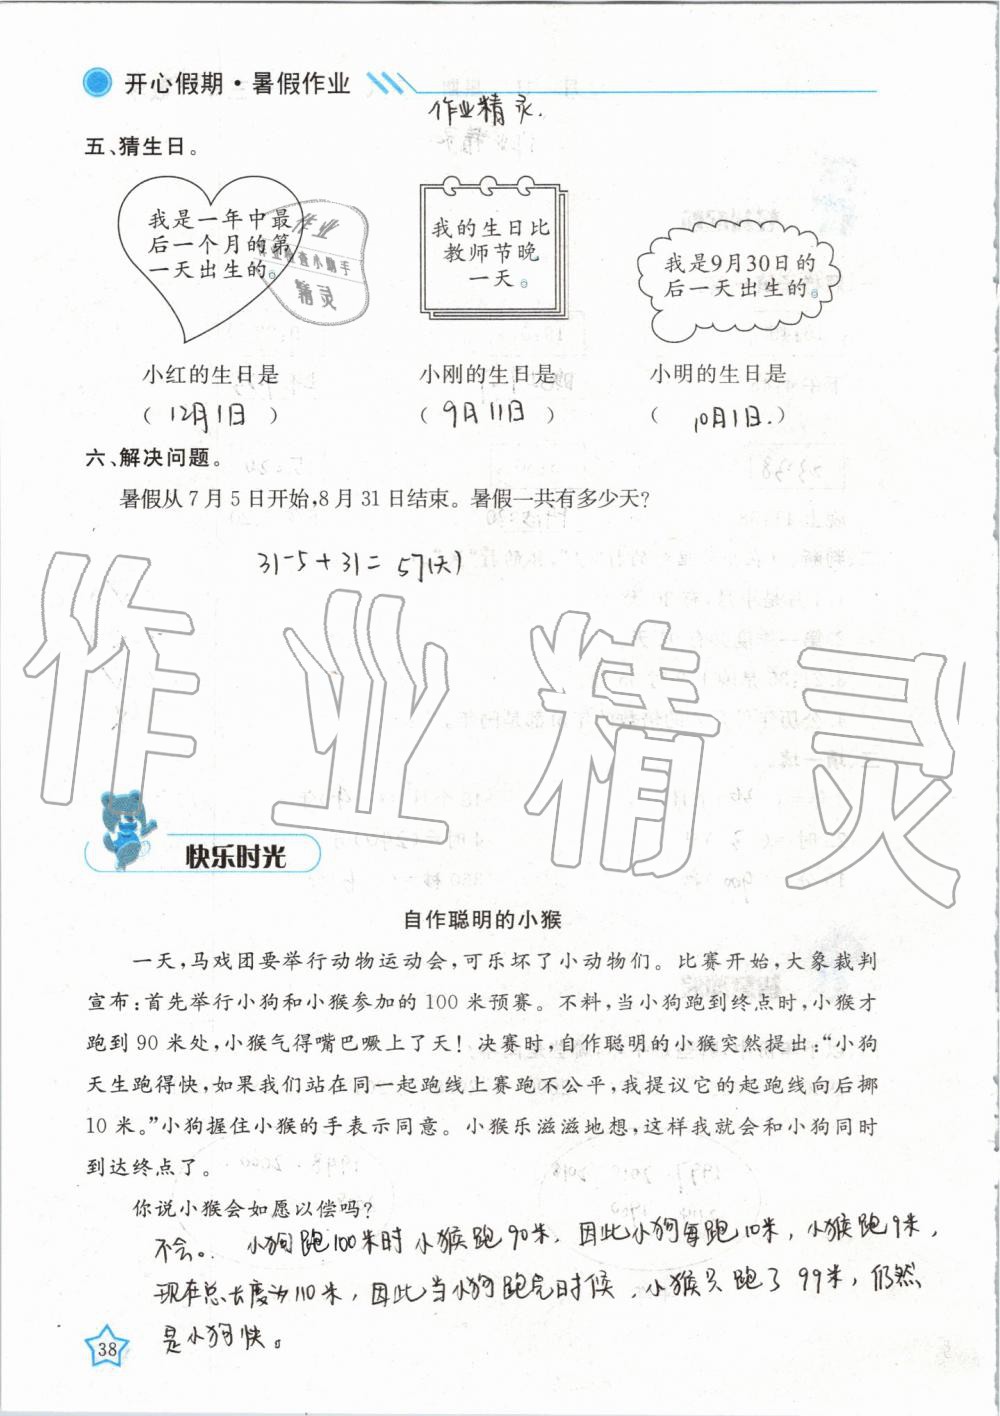 开心假期·暑假作业
作业精灵.
五、猜生日。
我是一年中最
后一个月的第
一天出生的。
我的生日比
教师节晚
一天。
我是9月30日的
后一天出生的。
作业
作业检查小助手
精灵
小红的生日是
小刚的生日是
小明的生日是
( 12月1日 )
( 9月11日 )
( 10月1日. )
六、解决问题。
暑假从7月5日开始,8月31日结束。暑假一共有多少天?
31-5+31=57(天)
作业精灵
快乐时光
自作聪明的小猴
一天,马戏团要举行动物运动会,可乐坏了小动物们。比赛开始,大象裁判
宣布:首先举行小狗和小猴参加的100米预赛。不料,当小狗跑到终点时,小猴才
跑到90米处,小猴气得嘴巴噘上了天!决赛时,自作聪明的小猴突然提出:“小狗
天生跑得快,如果我们站在同一起跑线上赛跑不公平,我提议它的起跑线向后挪
10米。”小狗握住小猴的手表示同意。小猴乐滋滋地想,这样我就会和小狗同时
到达终点了。
你说小猴会如愿以偿吗?
不会。小狗跑100米时小猴跑90米,因此小狗每跑10米,小猴跑9米,
现在总长度为110米,因此当小狗跑完时候,小猴只跑了99米,仍然
是小狗快。
38